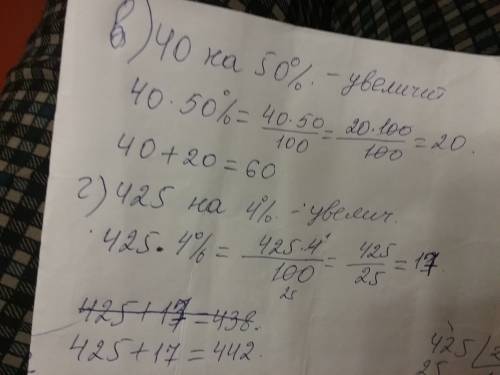 в) 40 на 50%. - увеличит
40 · 50% = 40·50/100 = 20·100/100 = 20.
40 + 20 = 60
г) 425 на 4%. - увелич.
425 · 4% = 425·4/100 = 425/25 = 17
25
425 + 17 = 438.
425 + 17 = 442.
425
25